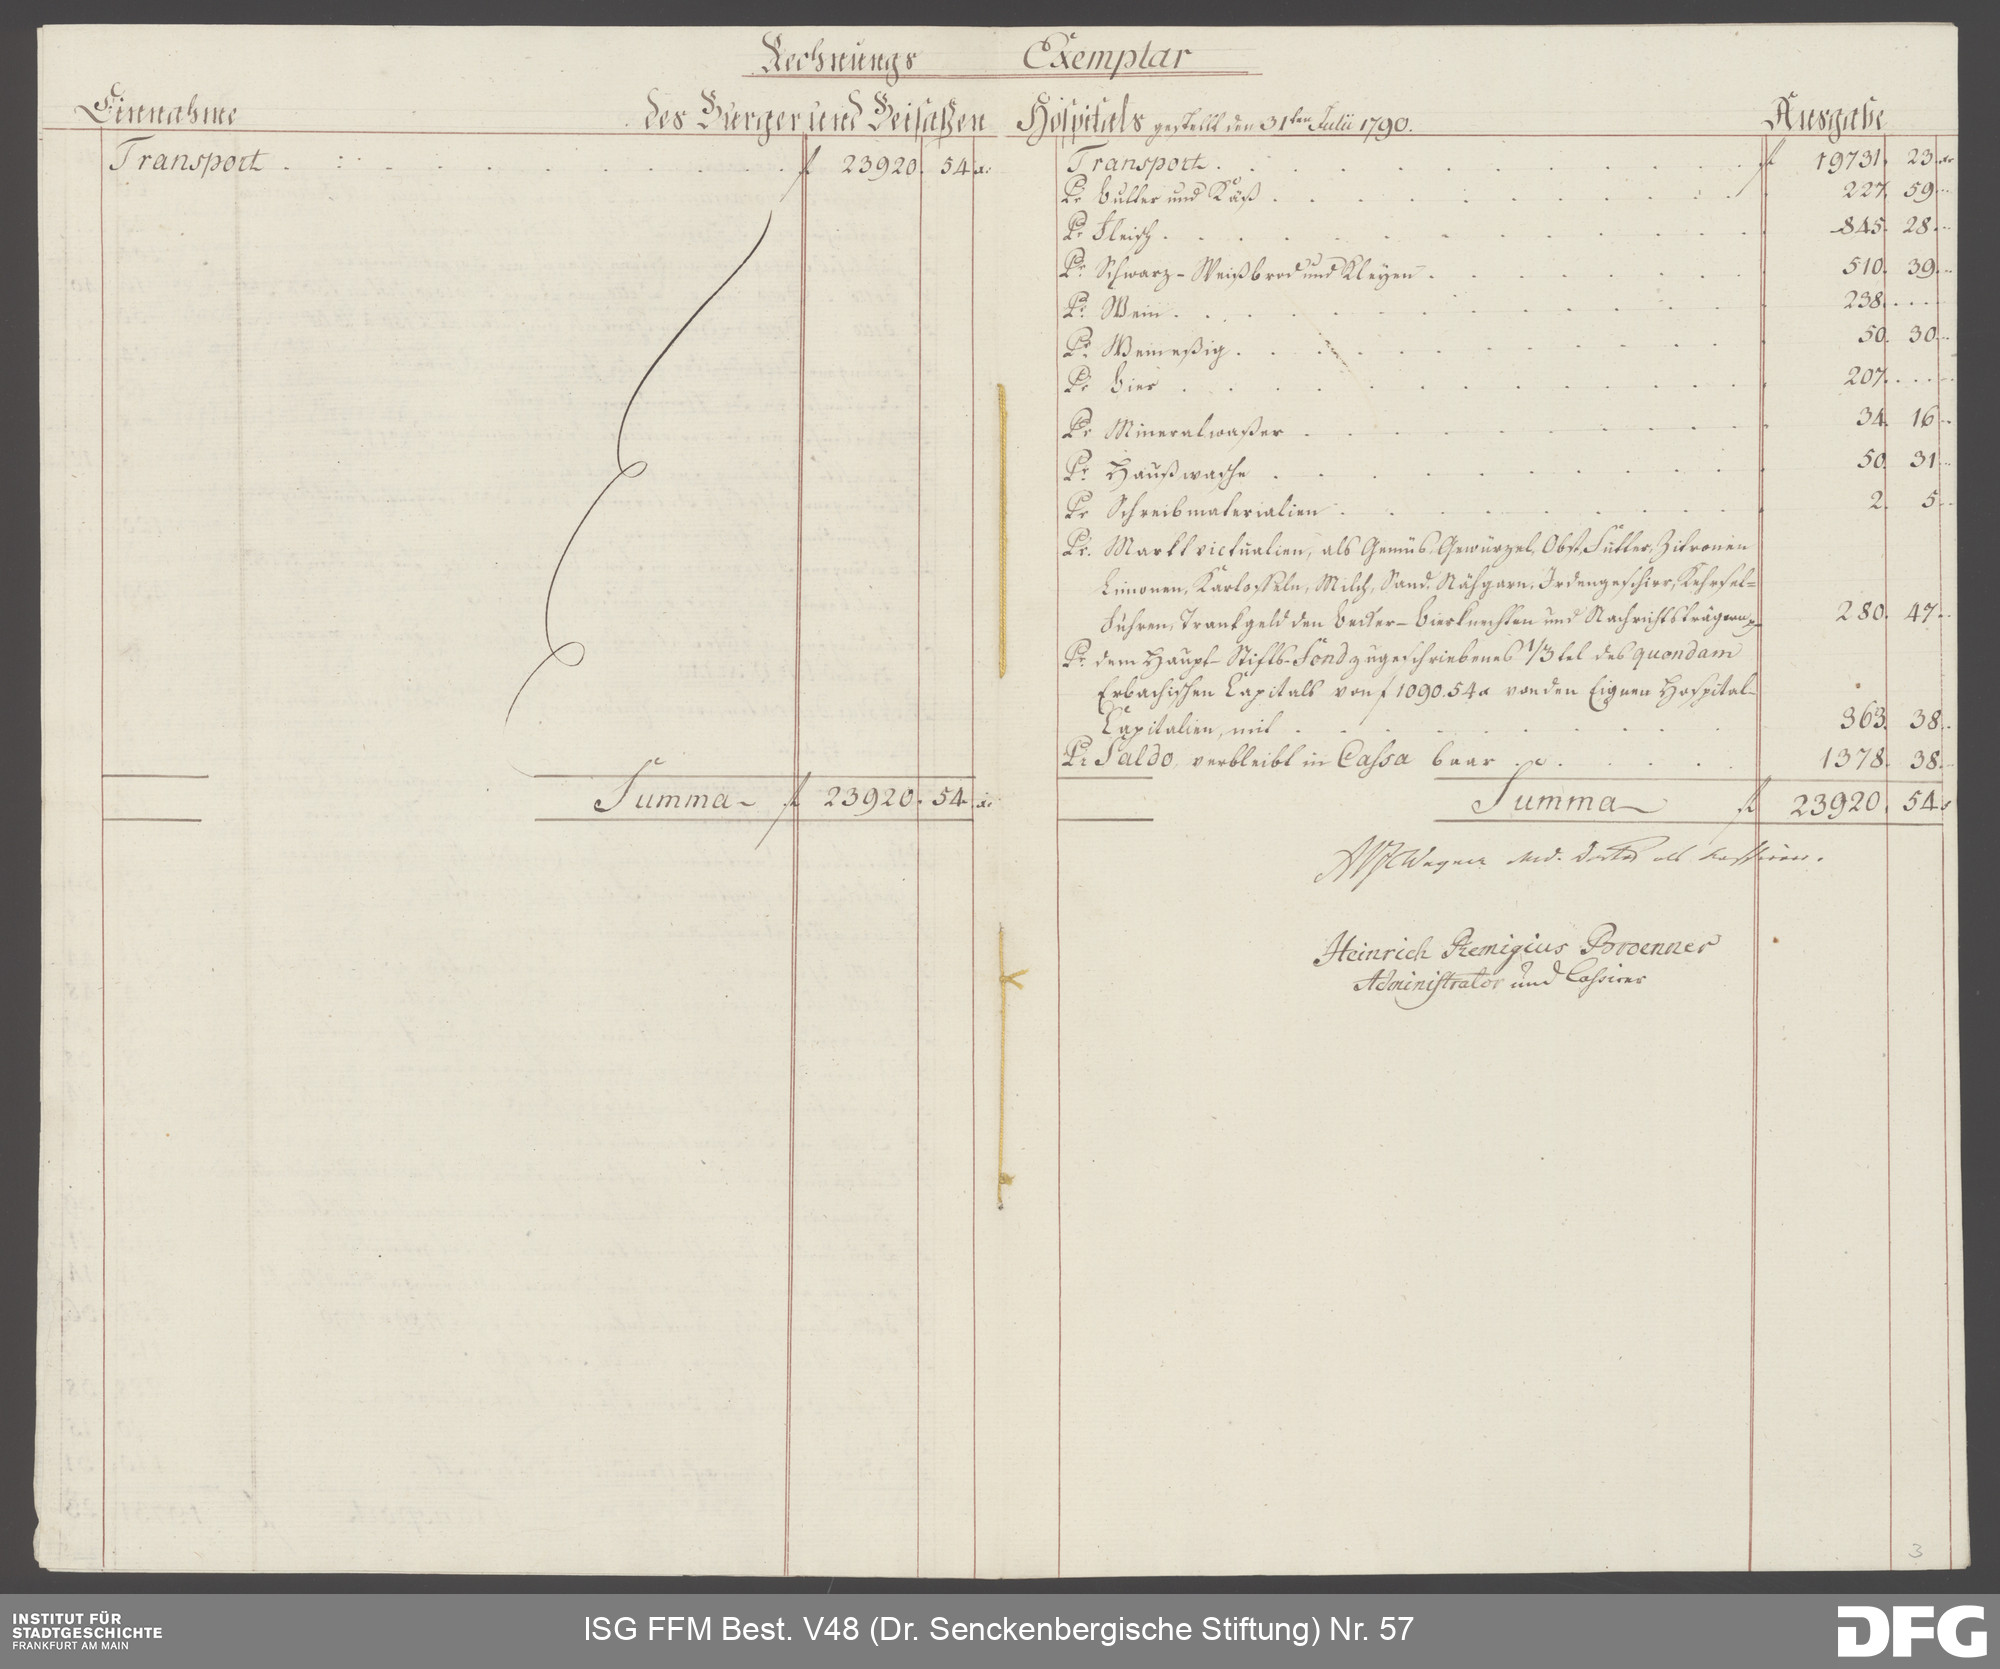 Rechnungs Exemplar
Einnahme des Burger und Beisaßen Hospitals gestellt den 31ten Julii 1790. Ausgabe
Transport . . . . . . . . . f 23920. 54 xr
Transport . . . . . . . . . f 19731. 23 xr
Pr Butter und Käß . . . . . . . . 227. 59
Pr Fleisch . . . . . . . . 845. 28
Pr Schwarz- Weißbrod und Kleyen . . . . . . 510. 39
Pr Wein . . . . . . . . 238. . . .
Pr Weineßig . . . . . . . . 50. 30
Pr Bier . . . . . . . . 207. . . .
Pr Mineralwaßer . . . . . . . 34. 16
Pr Haußwasche . . . . . . . 50. 31
Pr Schreibmaterialien . . . . . . 2. 5
Pr Marktvictualien, als Gemüs, Gewürzel, Obst, Futter, Zitronen
Limonen, Kartoffeln, Milch, Sand, Nähgarn, Irdengeschirr, Kehrsel-
Fuhren, Trankgeld den Becker- Bierknechten und Nachrichtsträgern 280. 47
Pr dem Haupt-Stifts-Fond zugeschriebenes 1/3tel des quondam
Erbachischen Capitals von f 1090.54 xr von den Eignen Hospital-
Capitalien, mit . . . . . . . 363. 38
Pr Saldo, verbleibt in Cassa baar . . . . . 1378. 38
Summa f 23920. 54 xr
Summa f 23920. 54
Wagner Med. Doctor als Kassierer.
Heinrich Remigius Broenner
Administrator und Cassirer
3
INSTITUT FÜR
STADTGESCHICHTE
FRANKFURT AM MAIN
ISG FFM Best. V48 (Dr. Senckenbergische Stiftung) Nr. 57
DFG